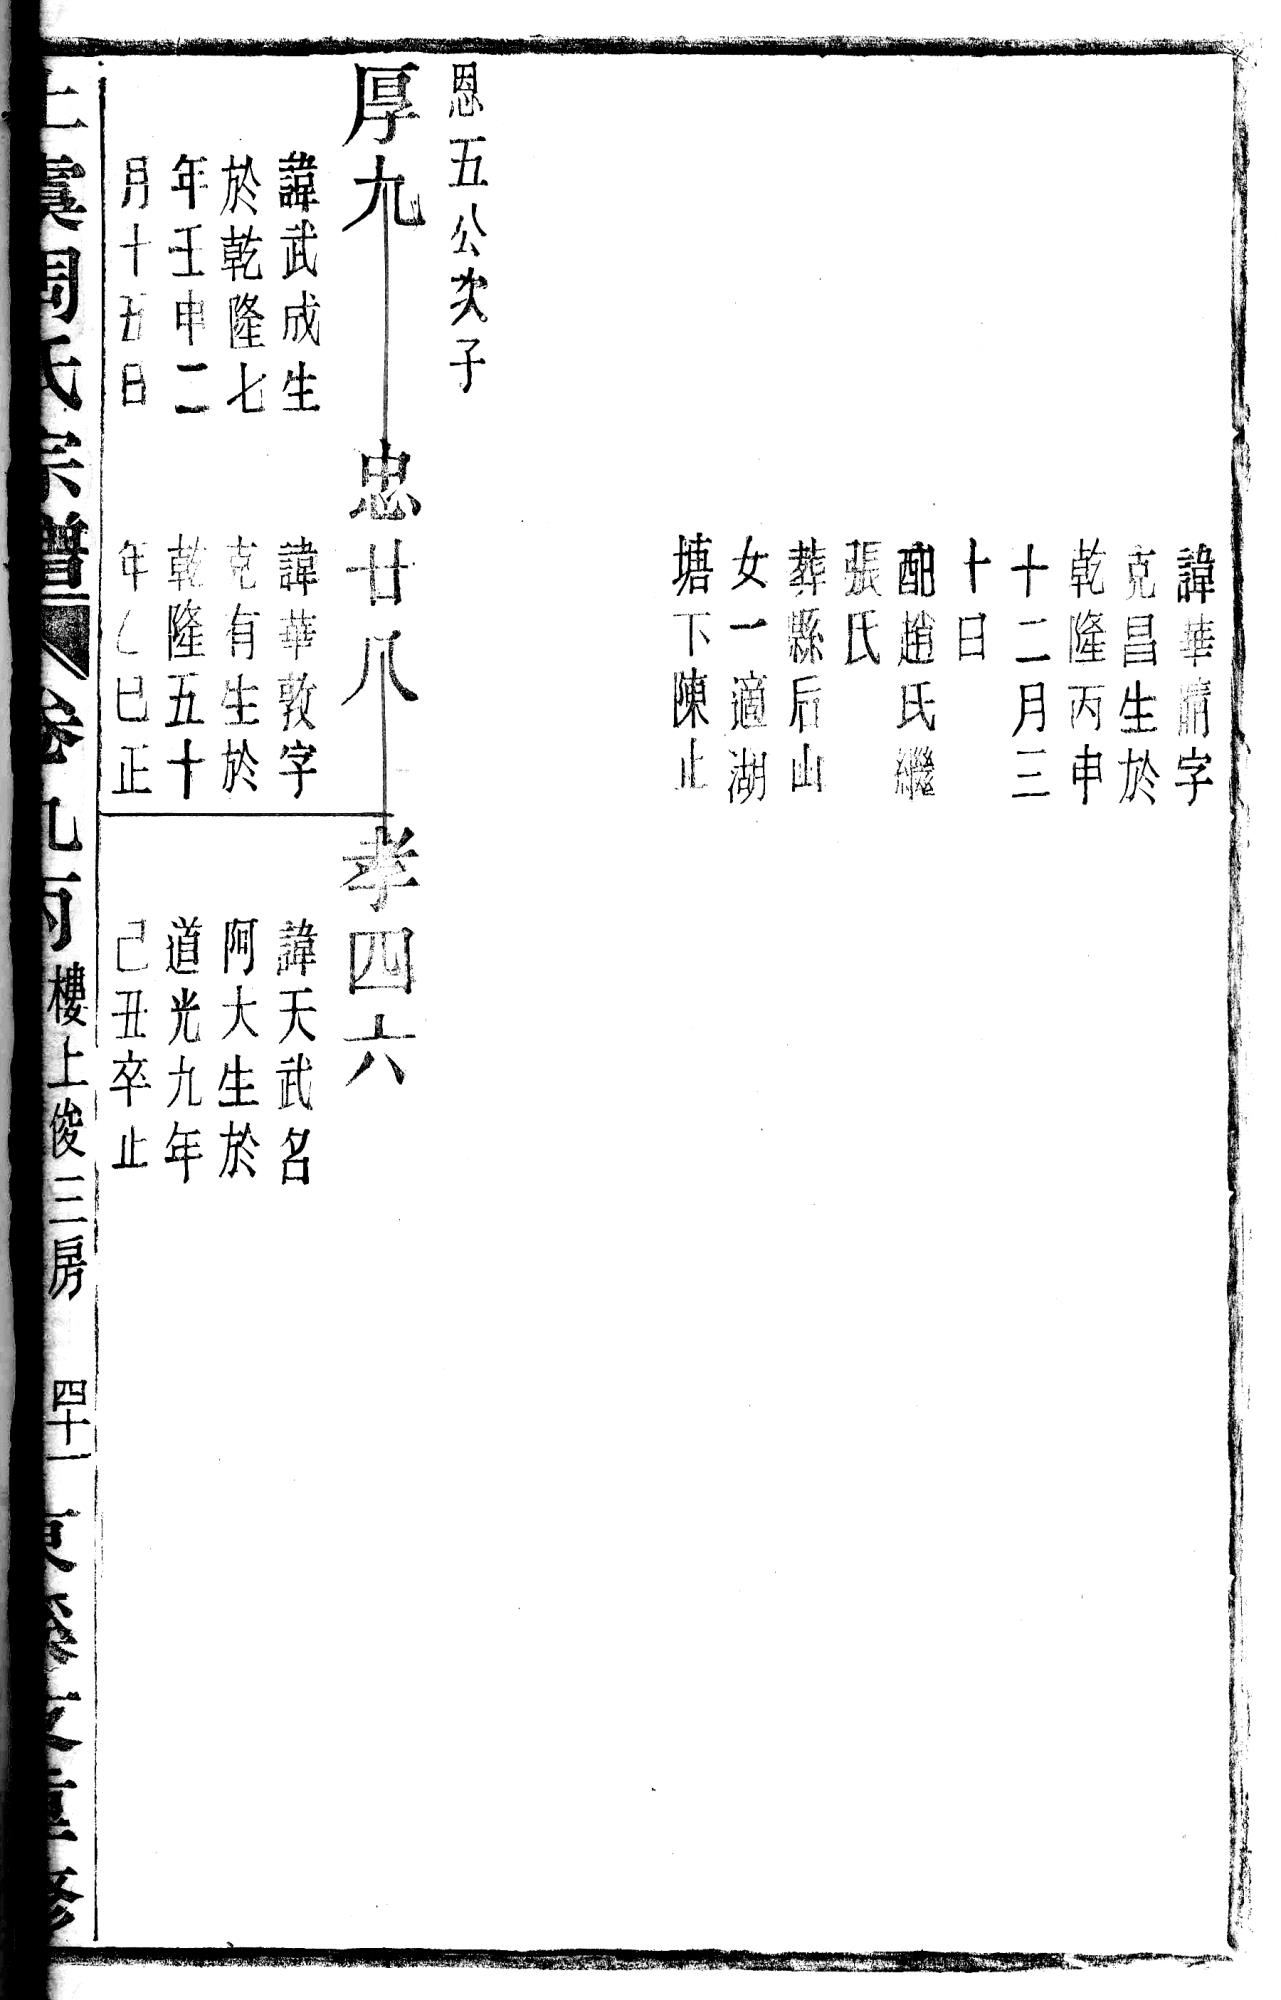 諱華清字
克昌生於
乾隆丙申
十二月三
十日
配趙氏繼
張氏
葬縣后山
女一適湖
塘下陳止
恩五公次子
厚九
忠廿八
孝四六
諱武成生
於乾隆七
年壬申二
月十五日
諱華敦字
克有生於
乾隆五十
年乙巳正
諱天武名
阿大生於
道光九年
己丑卒止
上虞周氏宗譜
卷九丙
樓上俊三房
四十一
重修